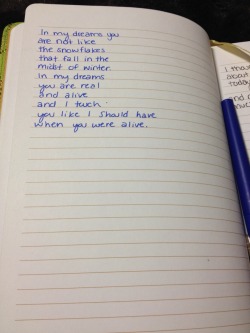 In my dreams you
are not like
the snowflakes
that fall in the
midst of winter.
In my dreams
you are real
and alive
and I touch
you like I should have
when you were alive.
I
about
today
and